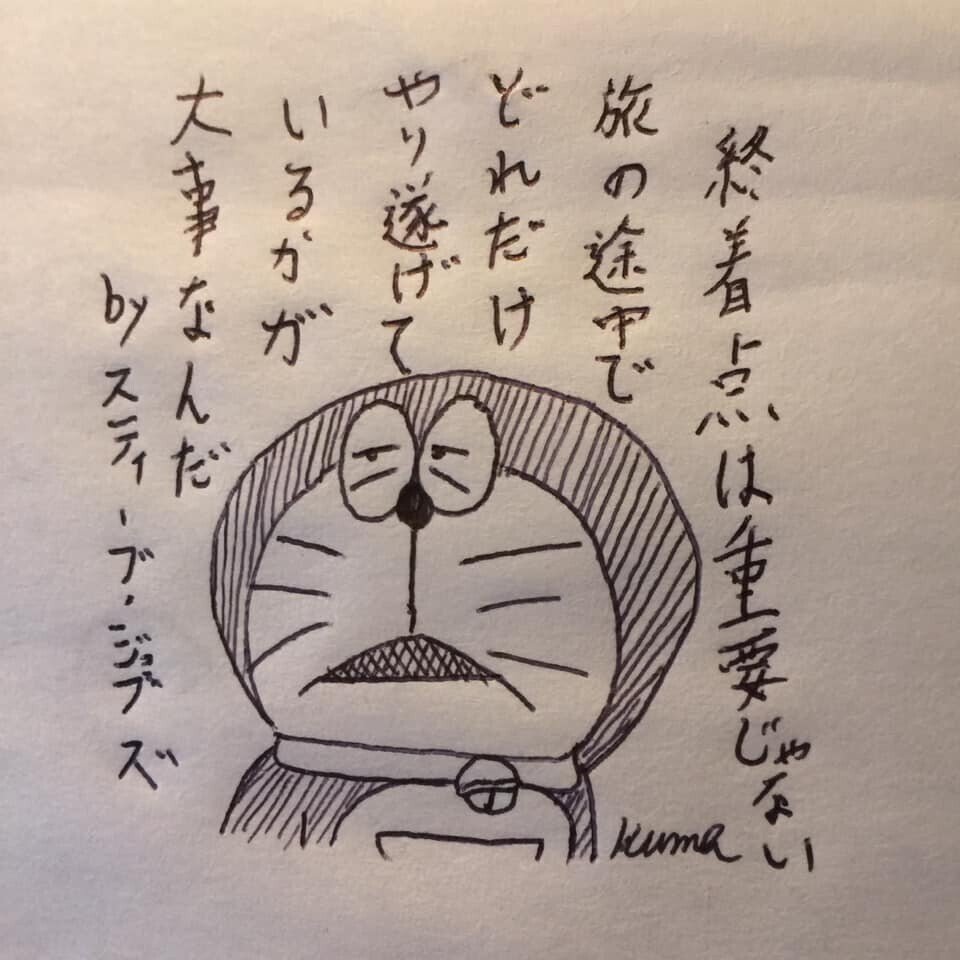 終着点は重要じゃない
旅の途中で
どれだけ
やり遂げて
いるかが
大事なんだ
by スティーブ・ジョブズ
kuma